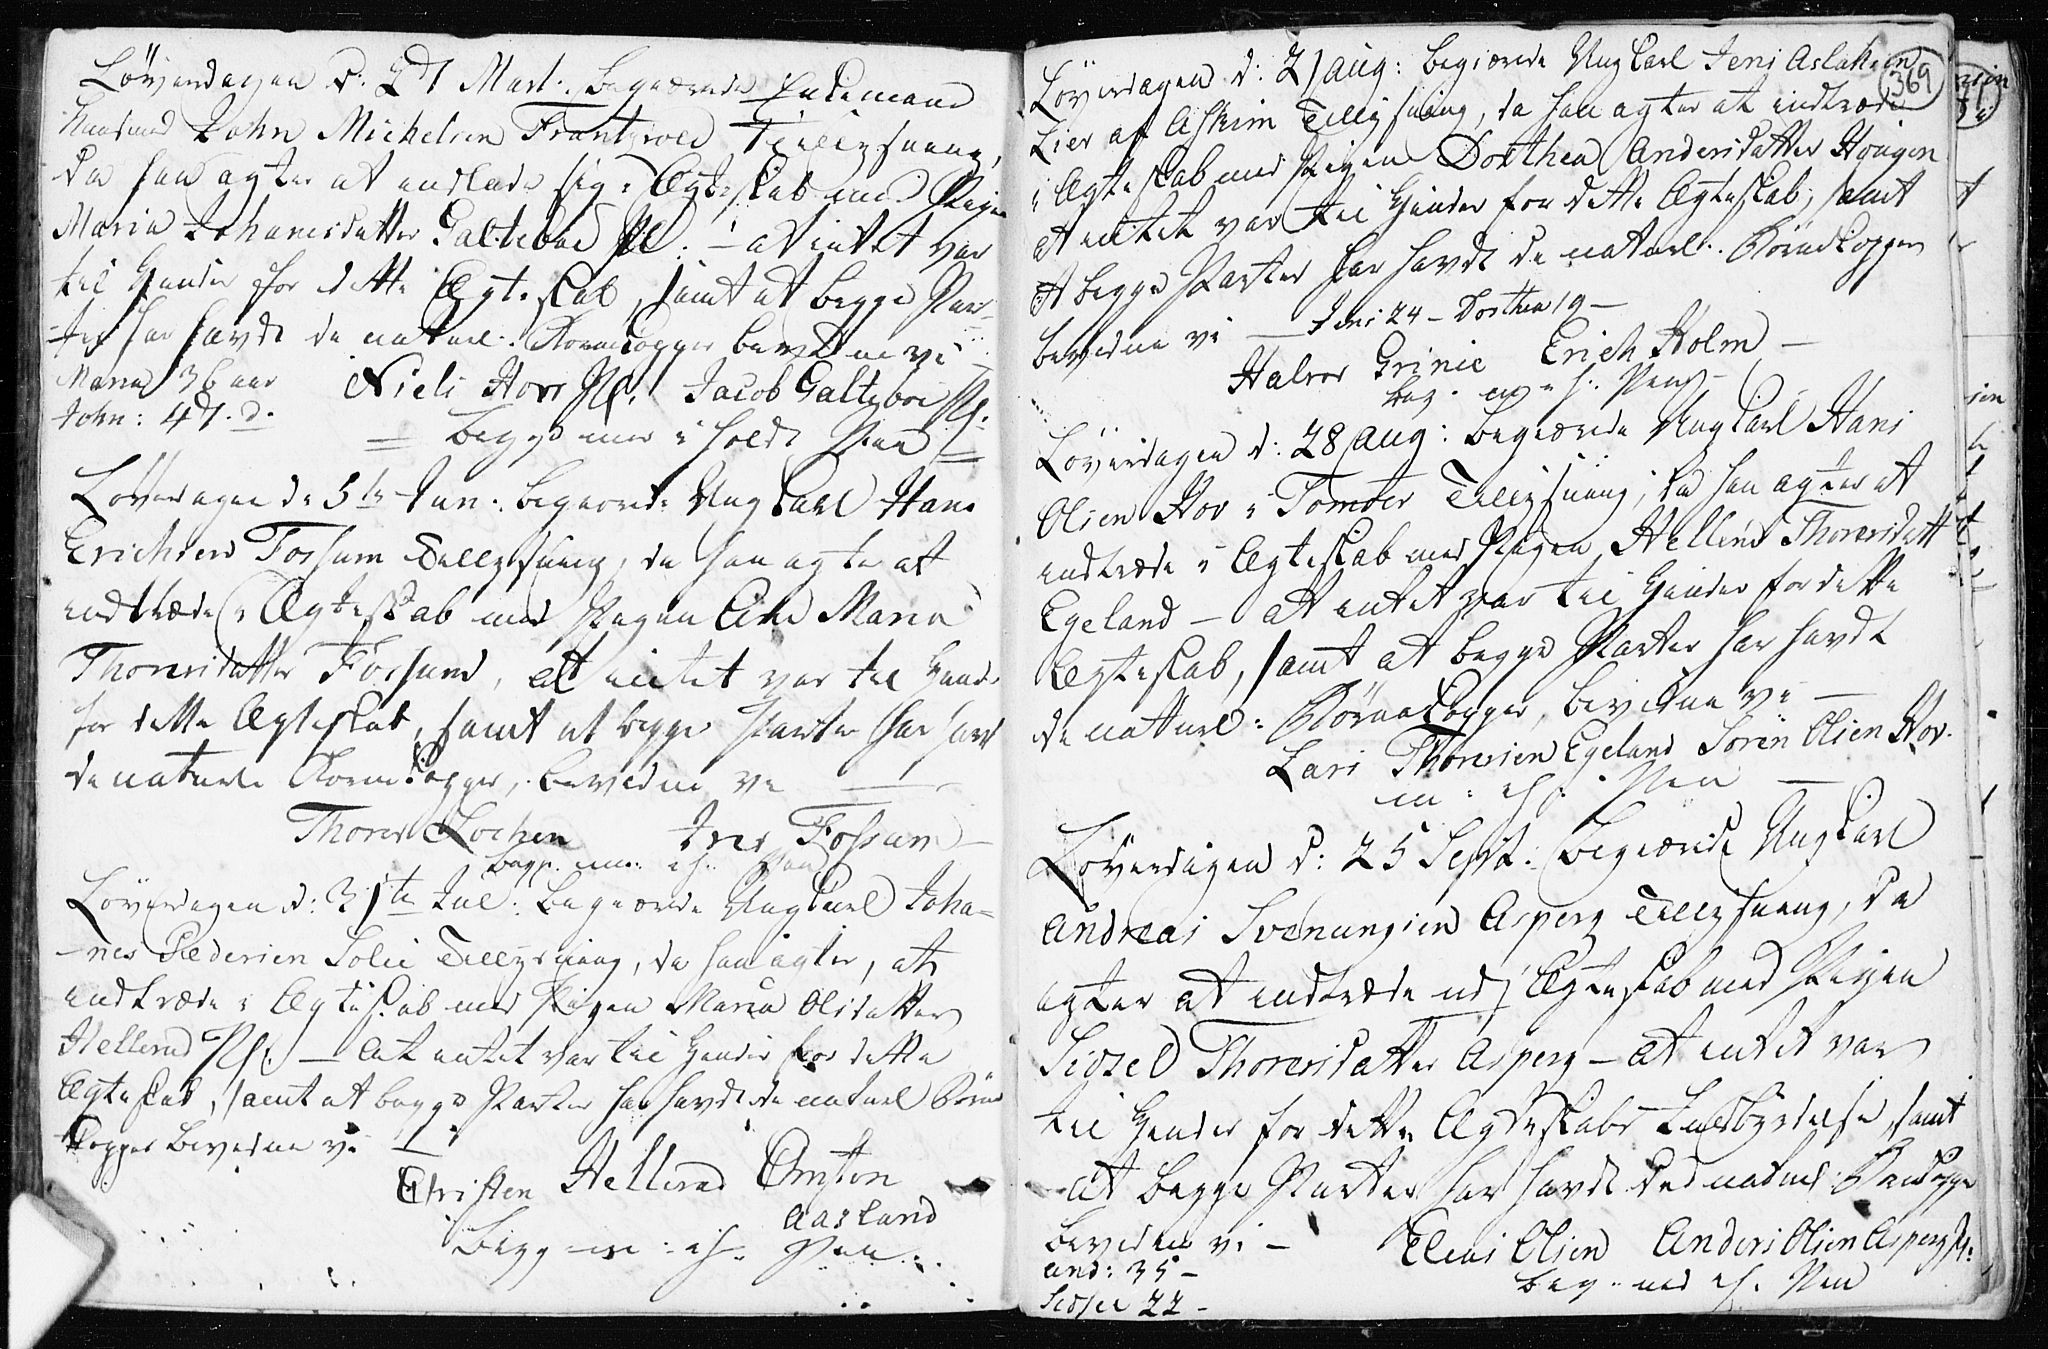 Løverdagen d: 27 Mart: begiærede Enkemand
John Michelsen Frantzvold Tillysning,
da han agter at indlade sig i Ægteskab med Pigen
Maria Johanesdatter Galteboe Pl: – at intet var
til Hinder for dette Ægteskab, samt at begge Par-
ter har havdt de naturl: Børnekopper bevidne vi –
Maria 36 aar Niels Hov Pl. Jacob Galteboe Pl.
John: 47. d.
– begge med i holdt Pen –
Løverdagen d: 5te Jun: begiærede Ung Karl Hans
Erichsen Fossum Tillysning, da han agter at
indtræde i Ægteskab med Pigen Ane Maria
Thoresdatter Fossum, at intet var til Hinder
for dette Ægteskab, samt at begge Parter har havt
de naturle Børnekopper, bevidne vi –
Thorer Lochen Iver Fossum
begge med i h: Pen
Løverdagen d: 31te Jul: begiærede Ung Karl Joha=
-nes Pedersen Solie Tillysning, da han agter, at
indtræde i Ægteskab med Pigen Maria Olsdatter
Hellerud Pl: – At intet var til Hinder for dette
Ægteskab, samt at begge Parter har havdt de naturl Børne
kopper bevidne vi –
Christen Hellerud Amston
Aasland
begg m: i h. Pen.
369
Løverdagen d: 21 Aug: begiærede Ung Karl Jens Aslaksen
Lier af Askim Tillysning, da han agter at indtræde
i Ægteskab med Pigen Dorthea Andersdatter Hougen
at intet var til Hinder for dette Ægteskab, samt
at begge Parter har havdt de naturl: Børnekopper
bevidne vi – Jens 24 – Dorthea 19 –
Halvor Grinie Erich Holm –
beg. m i h: Pen –
Løverdagen d: 28 Aug: begiærede Ung Karl Hans
Olsen Hov i Tomter Tillysning, da han agter at
indtræde i Ægteskab med Pigen Hellene Thoresdatt
Egeland – at intet var til Hinder for dette
Ægteskab, samt at begge Parter har havdt
de naturl: Børnekopper, bevidne vi –
Lars Thoresen Egeland Sören Olsen Hov.
m: i h: Pen –
Løverdagen d: 25 Sept: begiærede Ung Karl
Andreas Svenungsen Asperg Tillysning, da
agter at indtræde udj Ægteskab med Pigen
Sidsel Thoresdatter Asperg – at intet var
til Hinder for dette Ægteskabs Fuldbyrdelse, samt
at begge Parter har havdt de naturl: Børnekopper
bevidne vi – Elias Olsen Anders Olsen Asperg Pl:
And: 35 –
beg: med i h. Pen
Sidsel 22 –